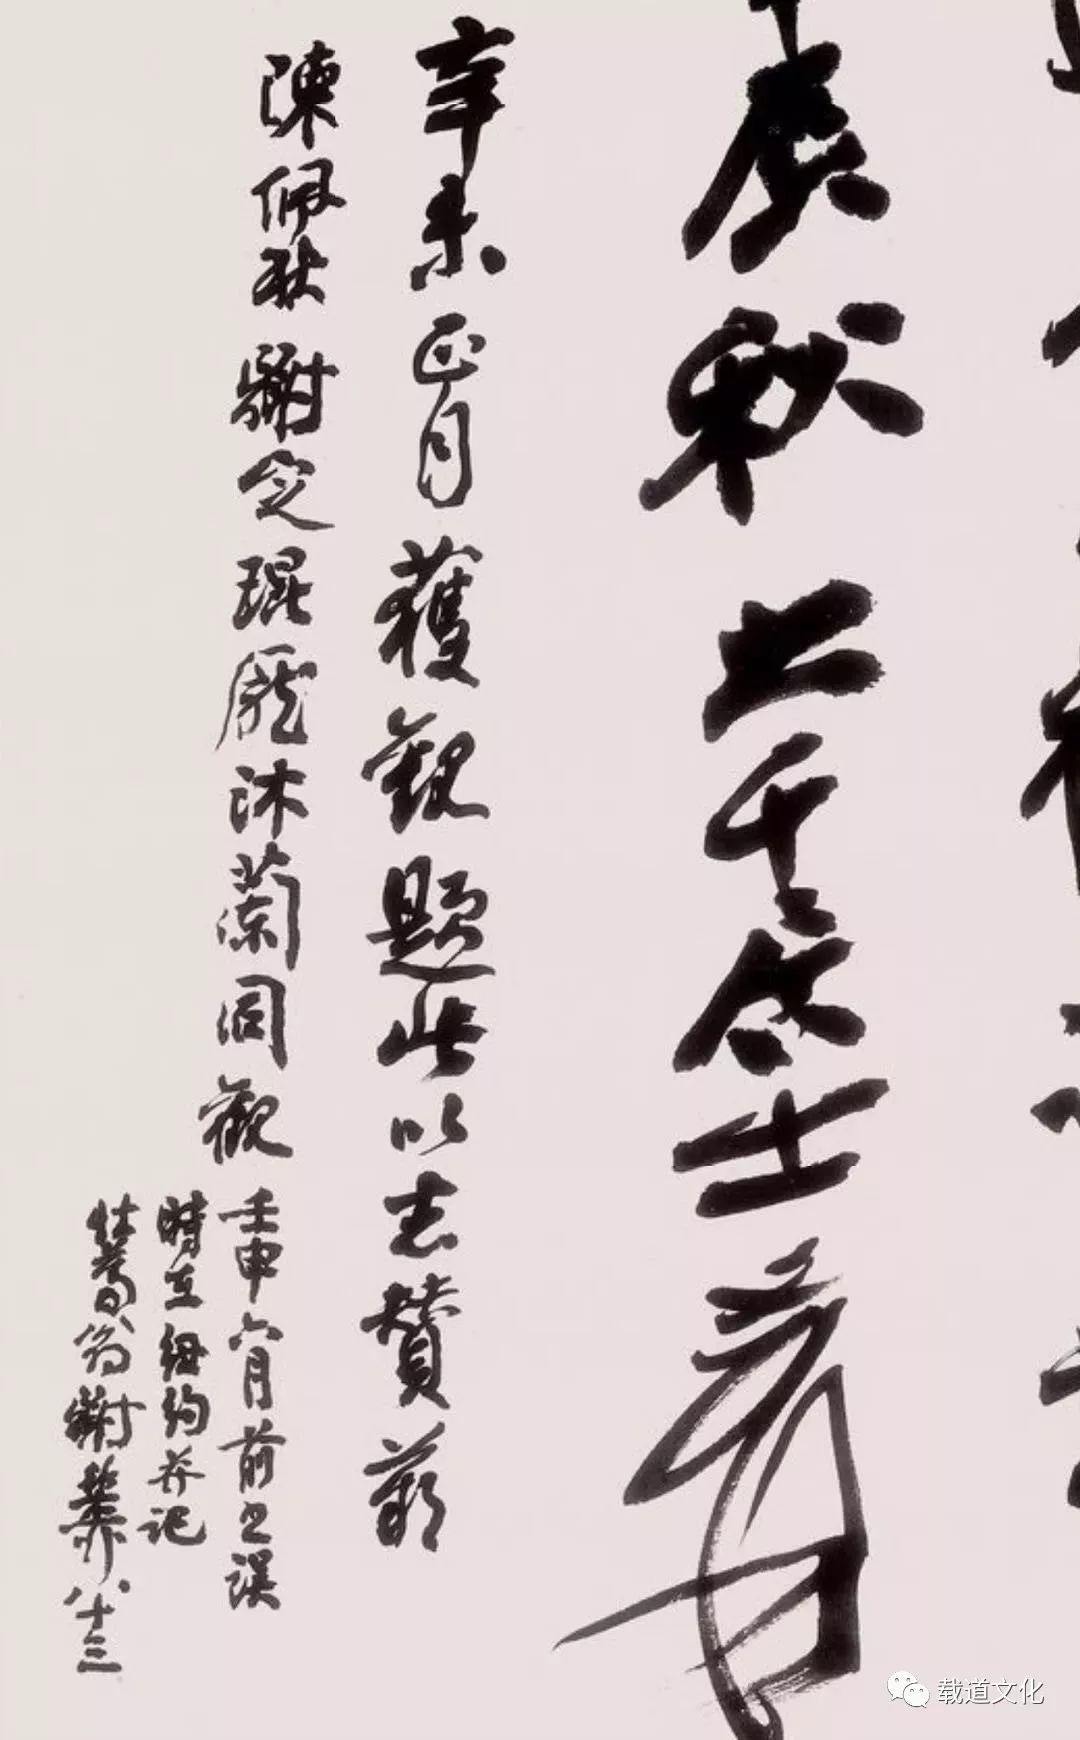 辰秋 大千居士爰
辛未正月獲觀題此以志贊嘆
陳佩秋 謝定琨 龐沐蘭同觀
壬申六月前上誤
時在紐約並記
壯暮翁謝稚八十三
载道文化